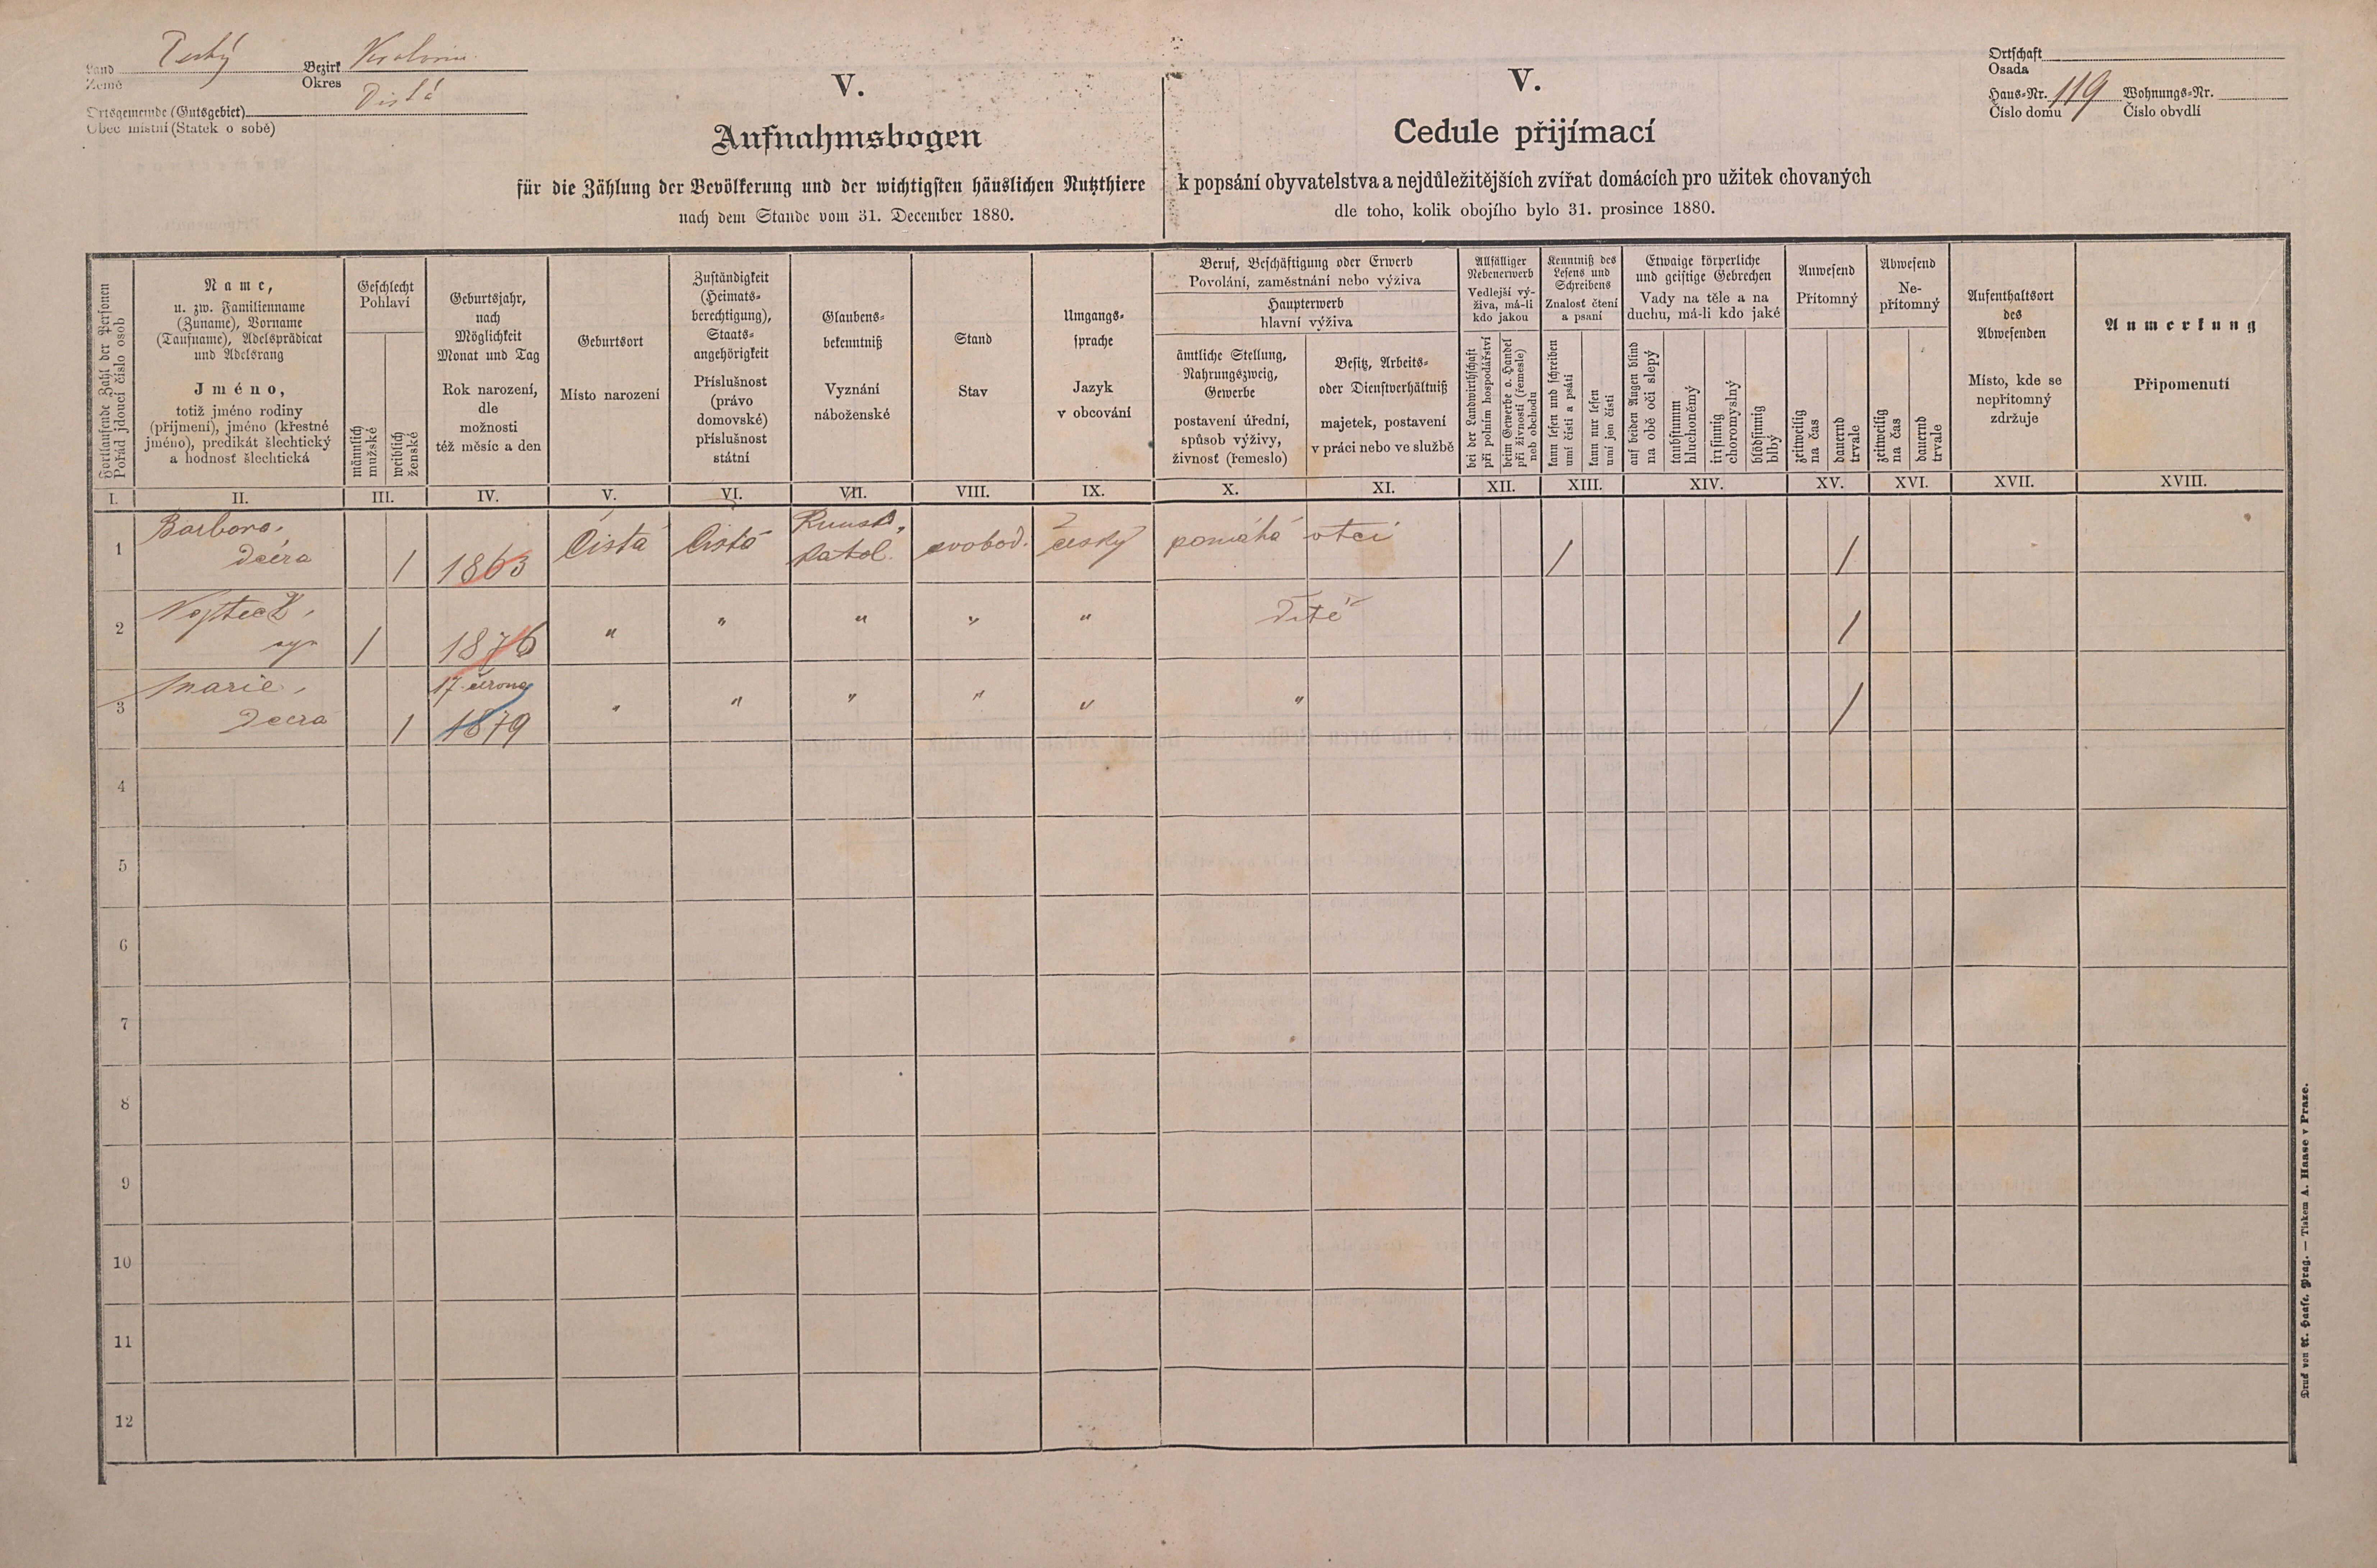 Land Český Bezirk
Země Okres
Ortsgemeinde (Gutsgebiet) Čistá
Obec místní (Statek o sobě)
V.
Aufnahmsbogen
für die Zählung der Bevölkerung und der wichtigsten häuslichen Nutzthiere
nach dem Stande vom 31. December 1880.
V.
Cedule přijímací
k popsání obyvatelstva a nejdůležitějších zvířat domácích pro užitek chovaných
dle toho, kolik obojího bylo 31. prosince 1880.
Ortschaft
Osada
Haus-Nr. 119 Wohnungs-Nr.
Číslo domu Číslo obydlí
Fortlaufende Zahl der Personen
Pořád jdoucí číslo osob
Name,
u. zw. Familienname
(Zuname), Vorname
(Taufname), Adelsprädicat
und Adelsrang
Jméno,
totiž jméno rodiny
(příjmení), jméno (křestné
jméno), predikát šlechtický
a hodnost šlechtická
Geschlecht
Pohlaví
männlich
mužské
weiblich
ženské
Geburtsjahr,
nach
Möglichkeit
Monat und Tag
Rok narození,
dle
možnosti
též měsíc a den
Geburtsort
Místo narození
Zuständigkeit
(Heimats-
berechtigung),
Staats-
angehörigkeit
Příslušnost
(právo
domovské)
příslušnost
státní
Glaubens-
bekenntniß
Vyznání
náboženské
Stand
Stav
Umgangs-
sprache
Jazyk
v obcování
Beruf, Beschäftigung oder Erwerb
Povolání, zaměstnání nebo výživa
Haupterwerb
hlavní výživa
ämtliche Stellung,
Nahrungszweig,
Gewerbe
postavení úřední,
spůsob výživy,
živnost (řemeslo)
Besitz, Arbeits-
oder Dienstverhältniß
majetek, postavení
v práci nebo ve službě
Allfälliger
Nebenerwerb
Vedlejší vý-
živa, má-li
kdo jakou
bei der Landwirthschaft
při polním hospodářství
beim Gewerbe o. Handel
při živnosti (řemesle)
neb obchodu
Kenntniß des
Lesens und
Schreibens
Znalost čtení
a psaní
kann lesen und schreiben
umí čísti a psáti
kann nur lesen
umí jen čísti
Etwaige körperliche
und geistige Gebrechen
Vady na těle a na
duchu, má-li kdo jaké
auf beiden Augen blind
na obě oči slepý
taubstumm
hluchoněmý
irrsinnig
choromyslný
blödsinnig
blbý
Anwesend
Přítomný
zeitweilig
na čas
dauernd
trvale
Abwesend
Ne-
přítomný
zeitweilig
na čas
dauernd
trvale
Aufenthaltsort
des
Abwesenden
Místo, kde se
nepřítomný
zdržuje
Anmerkung
Připomenutí
I. II. III. IV. V. VI. VII. VIII. IX. X. XI. XII. XIII. XIV. XV. XVI. XVII. XVIII.
1 Barbora, dcéra / 1863 Čistá Čistá Římsk. katol. svobod. česky pomáhá otci / /
2 Vojtěch, syn / 1876 " " " " " Dítě /
3 Marie, dcera / 17. června 1879 " " " " " " /
4
5
6
7
8
9
10
11
12
Druck von A. Haase, Prag. — Tiskem A. Haase v Praze.